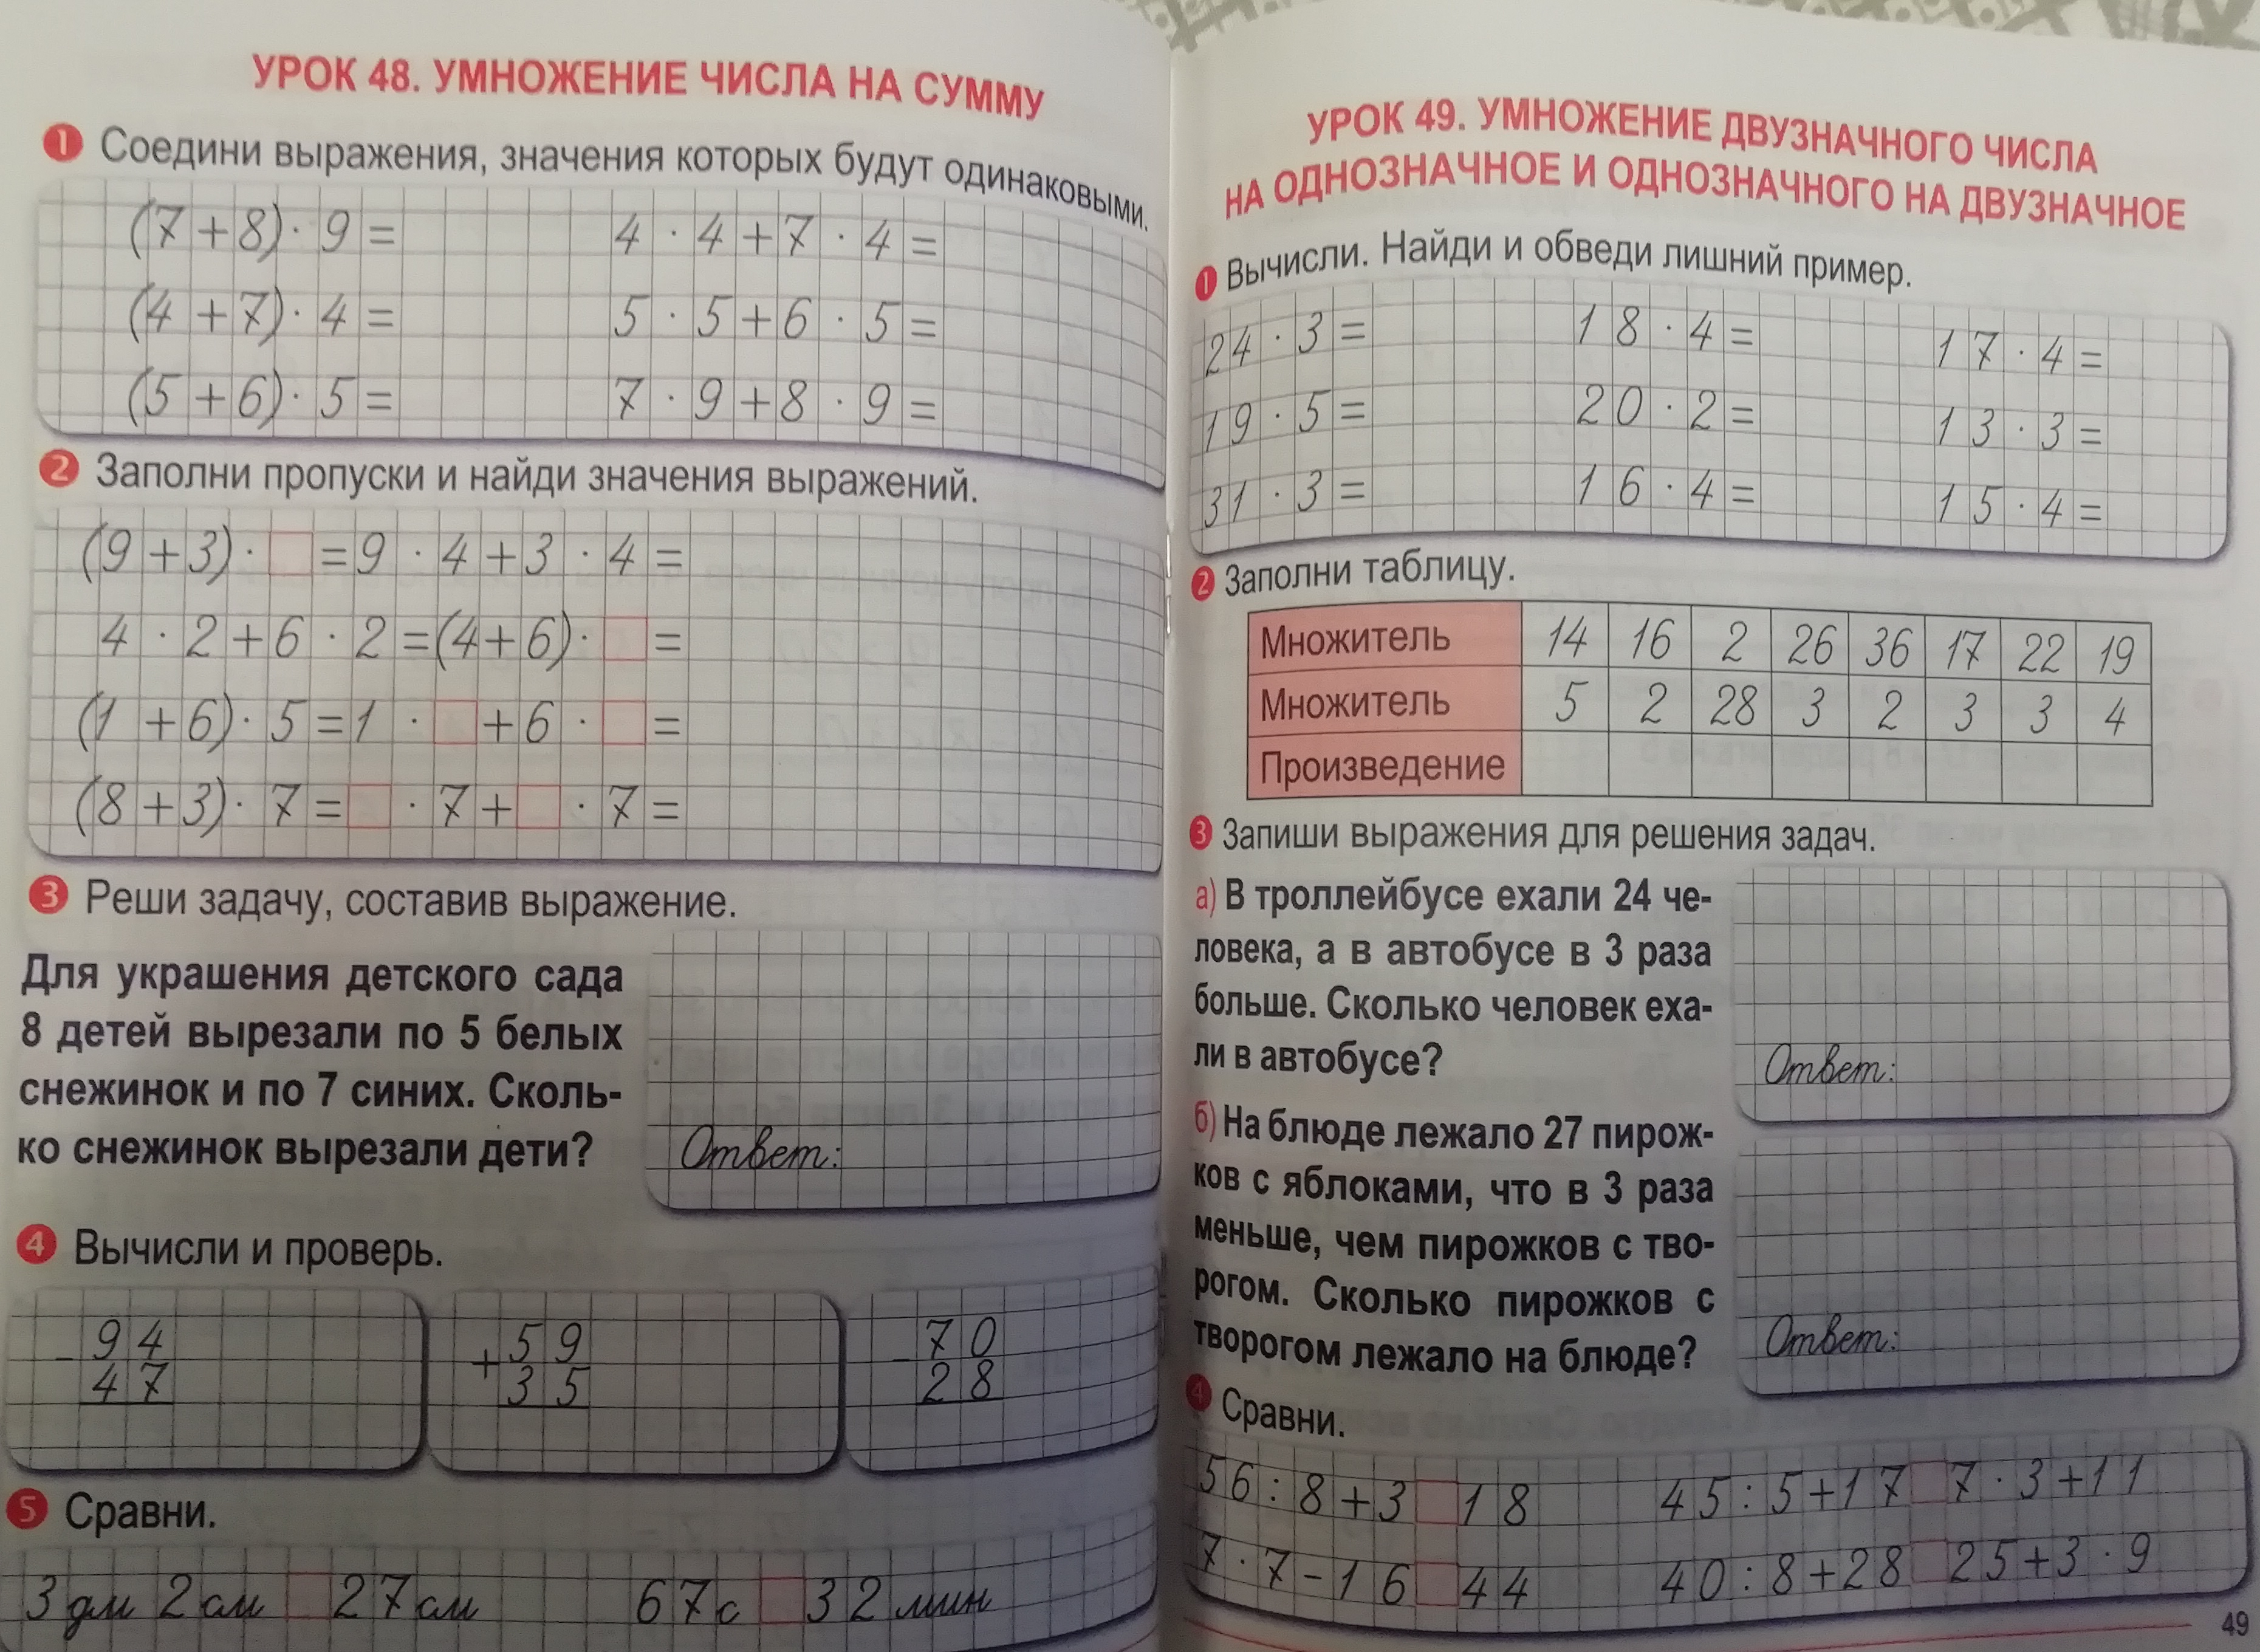 УРОК 48. УМНОЖЕНИЕ ЧИСЛА НА СУММУ
1 Соедини выражения, значения которых будут одинаковыми.
(7+8)·9= 4·4+7·4=
(4+7)·4= 5·5+6·5=
(5+6)·5= 7·9+8·9=
2 Заполни пропуски и найди значения выражений.
(9+3)·□=9·4+3·4=
4·2+6·2=(4+6)·□=
(1+6)·5=1·□+6·□=
(8+3)·7=□·7+□·7=
3 Реши задачу, составив выражение.
Для украшения детского сада
8 детей вырезали по 5 белых
снежинок и по 7 синих. Сколь-
ко снежинок вырезали дети?
Ответ:
4 Вычисли и проверь.
94 59 70
- + -
47 35 28
5 Сравни.
3 дм 2 см □ 27 см 67 с □ 32 мин
УРОК 49. УМНОЖЕНИЕ ДВУЗНАЧНОГО ЧИСЛА
НА ОДНОЗНАЧНОЕ И ОДНОЗНАЧНОГО НА ДВУЗНАЧНОЕ
1 Вычисли. Найди и обведи лишний пример.
24·3= 18·4= 17·4=
19·5= 20·2= 13·3=
31·3= 16·4= 15·4=
2 Заполни таблицу.
Множитель 14 16 2 26 36 17 22 19
Множитель 5 2 28 3 2 3 3 4
Произведение
3 Запиши выражения для решения задач.
а) В троллейбусе ехали 24 че-
ловека, а в автобусе в 3 раза
больше. Сколько человек еха-
ли в автобусе?
Ответ:
б) На блюде лежало 27 пирож-
ков с яблоками, что в 3 раза
меньше, чем пирожков с тво-
рогом. Сколько пирожков с
творогом лежало на блюде?
Ответ:
4 Сравни.
56:8+3□18 45:5+17□7·3+11
7·7-16□44 40:8+28□25+3·9
49